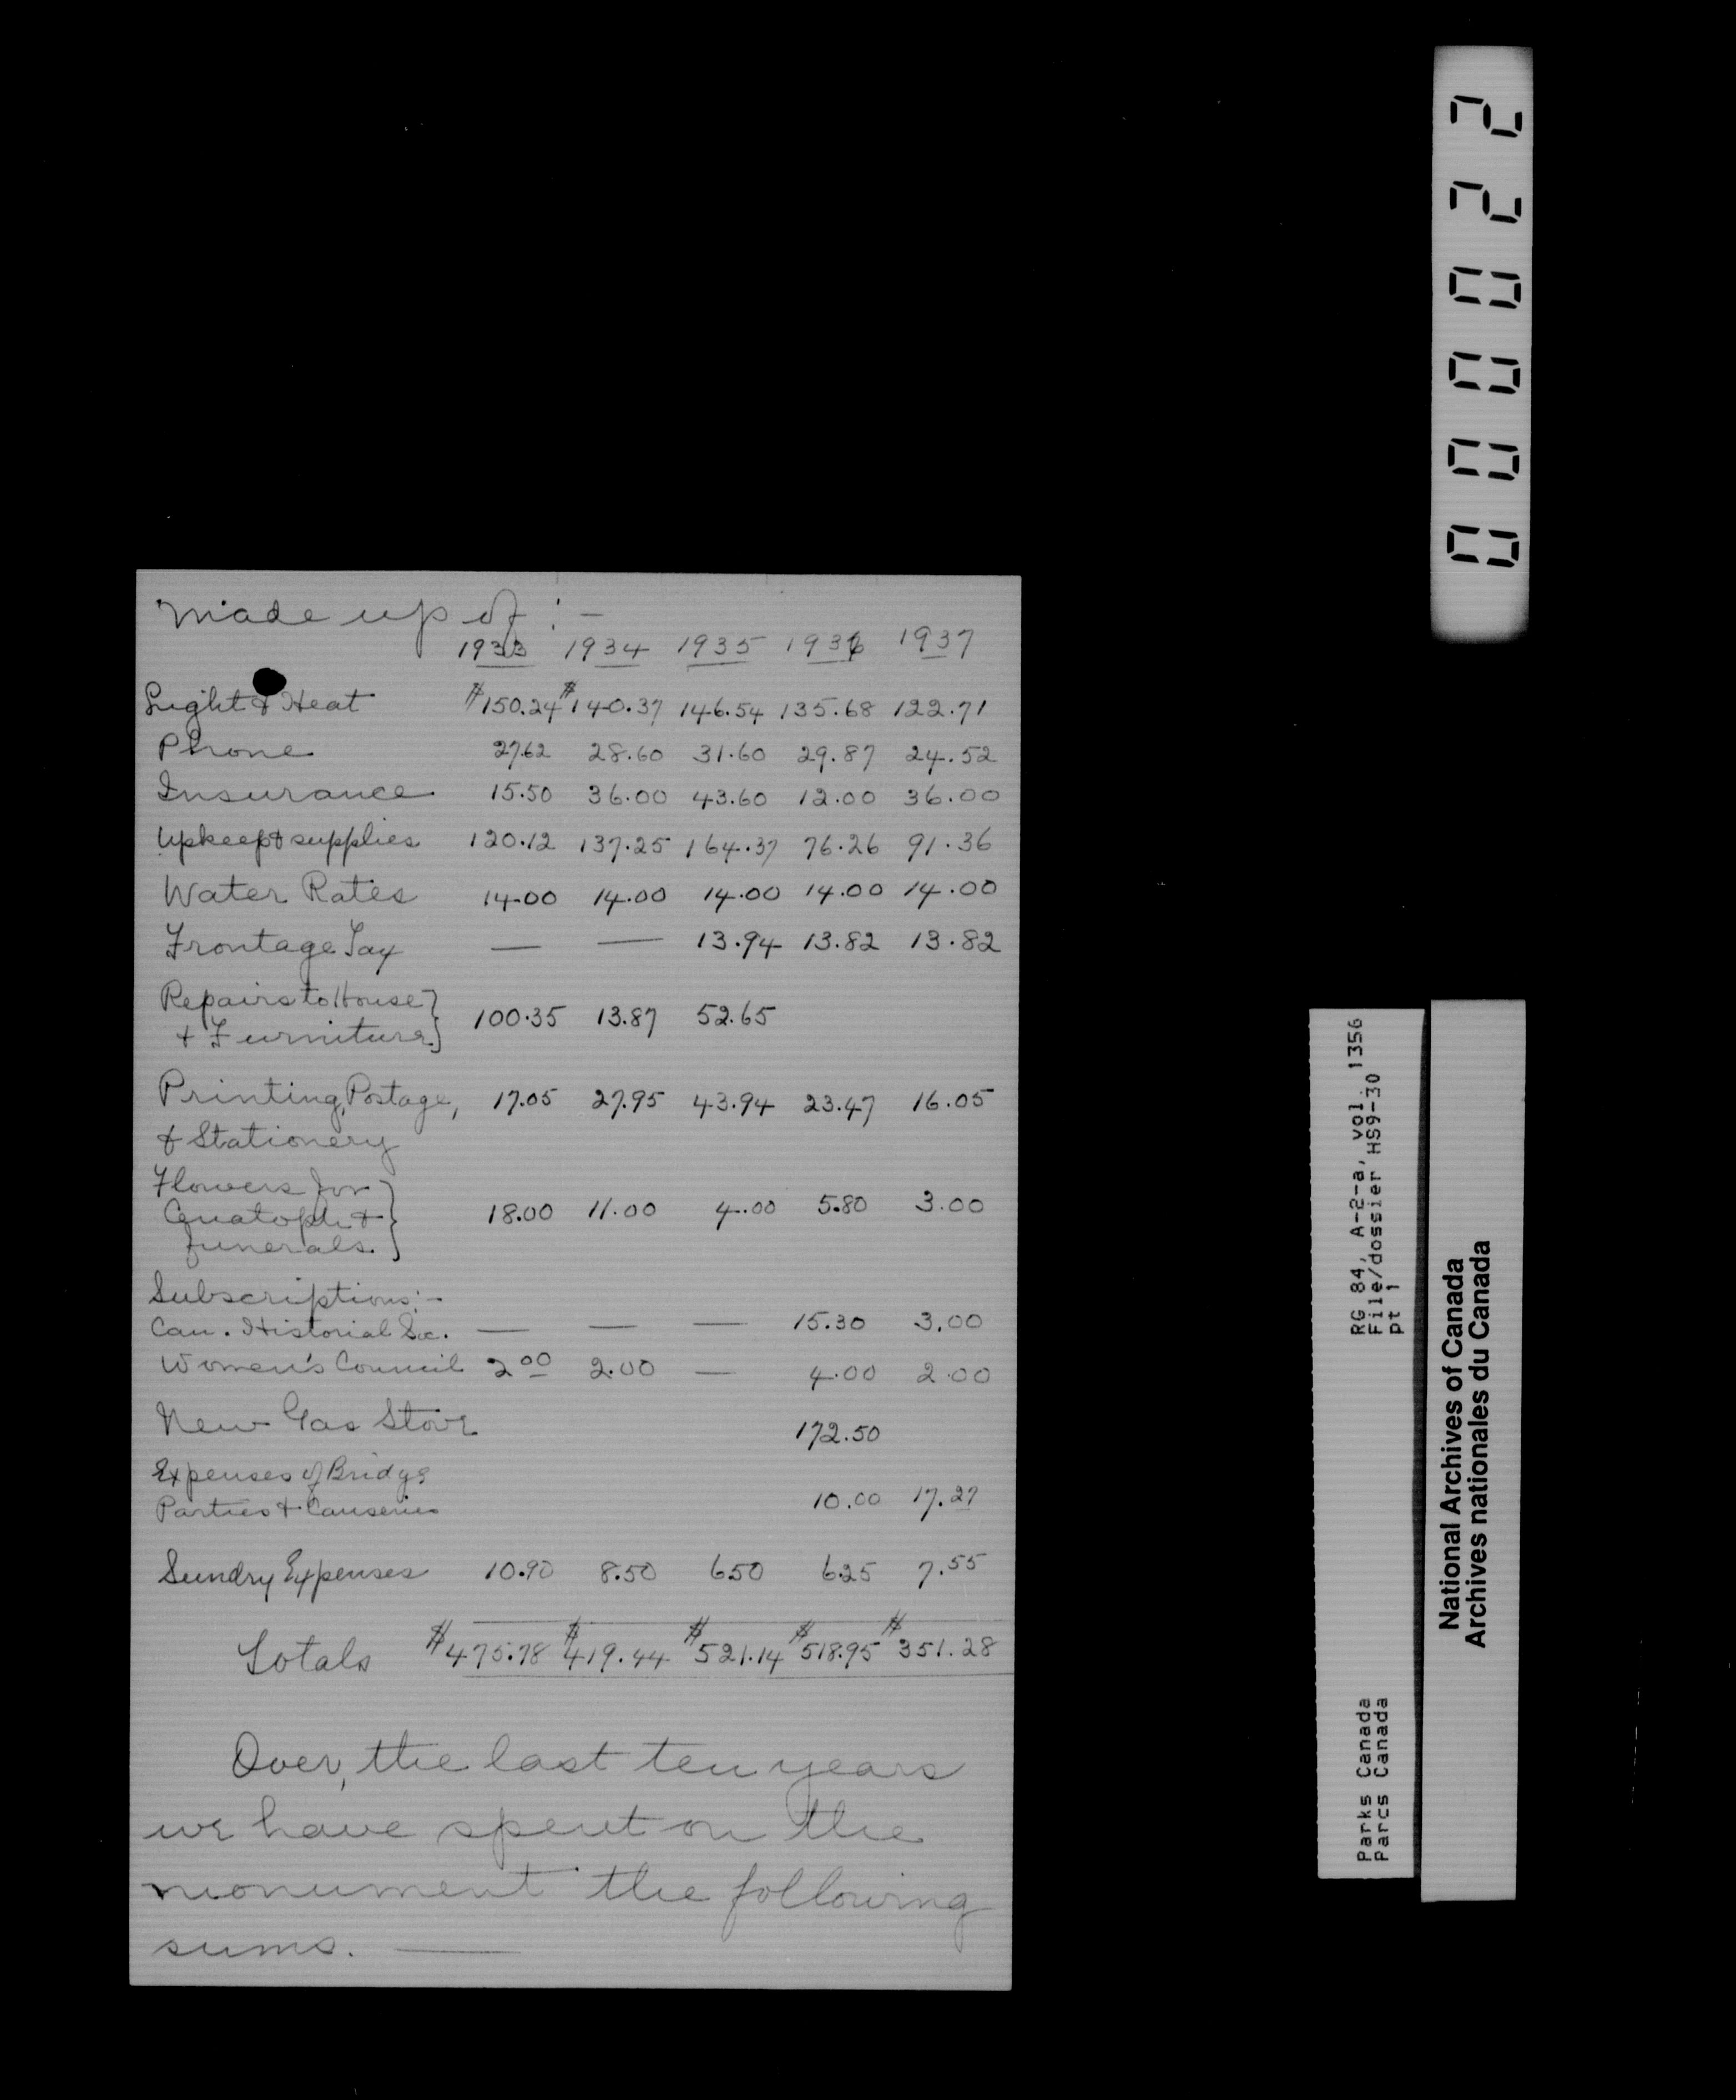 Made up of :-
1933 1934 1935 1936 1937
Light & Heat $150.24 $140.37 146.54 135.68 122.71
Phone 27.62 28.60 31.60 29.87 24.52
Insurance 15.50 36.00 43.60 12.00 36.00
Upkeep & supplies 120.12 137.25 164.37 76.26 91.36
Water Rates 14.00 14.00 14.00 14.00 14.00
Frontage Tax — — 13.94 13.82 13.82
Repairs to House
& Furniture } 100.35 13.87 52.65
Printing, Postage, 17.05 27.95 43.94 23.47 16.05
& Stationery
Flowers for
Cenatoph & } 18.00 11.00 4.00 5.80 3.00
funerals.
Subscriptions :-
Can. Historial Soc. — — — 15.30 3.00
Women's Council 2 00 2.00 — 4.00 2.00
New Gas Stove 172.50
Expenses of Bridge
Parties & Causeries 10.00 17.27
Sundry Expenses 10.90 8.50 6.50 6.25 7.55
Totals $475.78 $419.44 $521.14 $518.95 $351.28
Over, the last ten years
we have spent on the
monument the following
sums. —
000022
RG 84, A-2-a, vol. 1356
File/dossier HS9-30
pt 1
Parks Canada
Parcs Canada
National Archives of Canada
Archives nationales du Canada